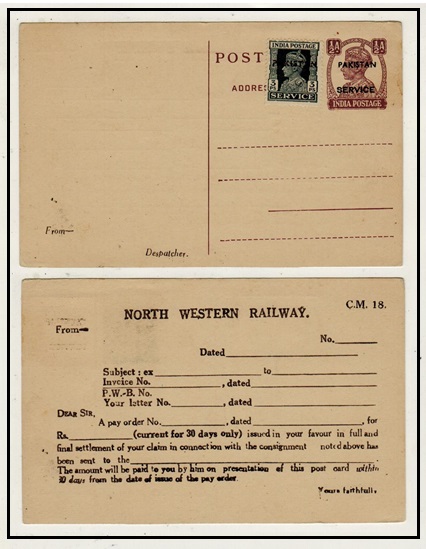 POST
ADDRES
INDIA POSTAGE
PAKISTAN
3 PS 3 PS
SERVICE
½A ½A
PAKISTAN
SERVICE
INDIA POSTAGE
From—
Despatcher.
C.M. 18.
NORTH WESTERN RAILWAY.
From—
No.
Dated
Subject : ex to
Invoice No. , dated
P.W.-B. No.
Your letter No. , dated
DEAR SIR,
A pay order No. , dated , for
Rs. (current for 30 days only) issued in your favour in full and
final settlement of your claim in connection with the consignment noted above has
been sent to the
The amount will be paid to you by him on presentation of this post card within
30 days from the date of issue of the pay order.
Yours faithfully,